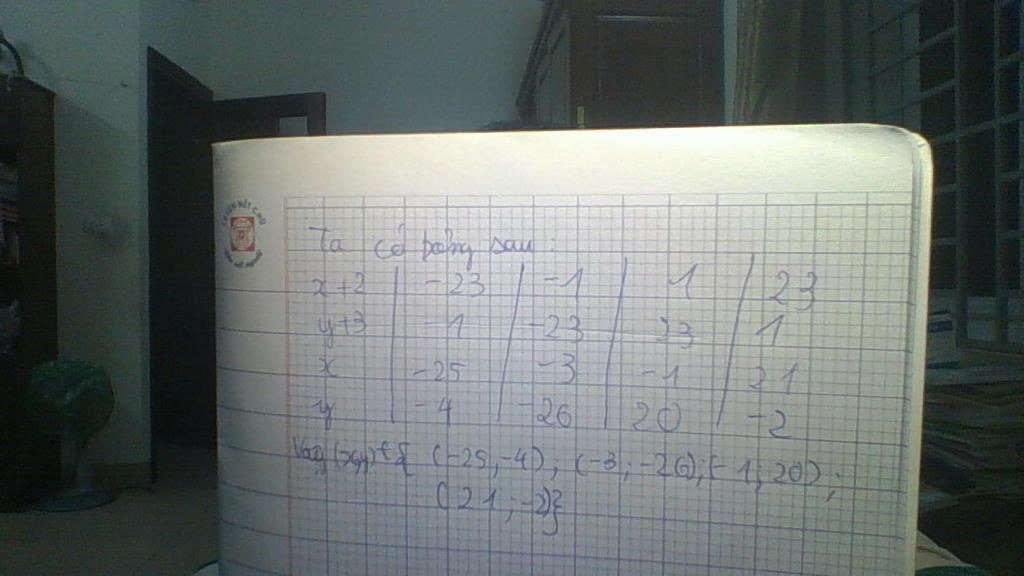 Ta có bảng sau:
x+2 | -23 | -1 | 1 | 23
y+3 | -1 | -23 | 23 | 1
x | -25 | -3 | -1 | 21
y | -4 | -26 | 20 | -2
Vậy (x,y) ∈ { (-25,-4), (-3,-26); (-1;20);
(21;-2)}